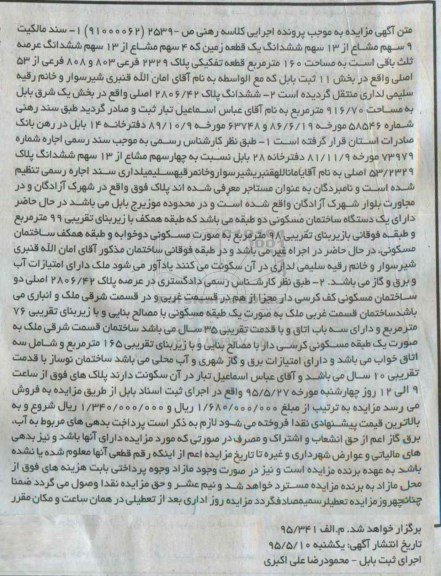 متن آگهی مزایده به موجب پرونده اجرایی کلاسه رهنی ص -۲۵۳۹ (۹۱۰۰۰۰۶۲) ۱- سند مالکیت
۹ سهم مشاع از ۱۳ سهم ششدانگ یک قطعه زمین که ۴ سهم مشاع از ۱۳ سهم ششدانگ عرصه
ثلث باقی است به مساحت ۱۶۰ مترمربع قطعه تفکیکی پلاک ۲۳۲۹ فرعی ۸۰۳ و ۸۰۸ فرعی از ۵۳
اصلی واقع در بخش ۱۱ ثبت بابل که مع الواسطه به نام آقای امان الله قنبری شیرسوار و خانم رقیه
سلیمی لداری منتقل گردیده است ۲- ششدانگ پلاک ۲۸۰۶/۴۲ اصلی واقع در بخش یک شرق بابل
به مساحت ۹۱۶/۷۰ مترمربع به نام آقای عباس اسماعیل تبار ثبت و صادر گردید طبق سند رهنی
شماره ۵۸۵۴۶ مورخه ۸۶/۶/۱۹ و ۶۳۷۴۸ مورخه ۸۹/۱۰/۹ دفترخانه ۱۴ بابل در رهن بانک
صادرات استان قرار گرفته است ۱- طبق نظر کارشناس رسمی به موجب سند رسمی اجاره شماره
۷۳۹۷۹ مورخه ۸۱/۱۱/۹ دفترخانه ۲۸ بابل نسبت به چهارسهم مشاع از ۱۳ سهم ششدانگ پلاک
۵۳/۲۳۲۹ اصلی به نام آقایاماناللهقنبریشیرسواروخانمرقیهسلیمیلداری سند اجاره رسمی تنظیم
شده است و نامبردگان به عنوان مستاجر معرفی شده اند پلاک فوق واقع در شهرک آزادگان و در
مجاورت بلوار شهرک آزادگان واقع شده است و در محدوده موزیرج بابل می باشد در حال حاضر
دارای یک دستگاه ساختمان مسکونی دو طبقه می باشد که طبقه همکف با زیربنای تقریبی ۹۹ مترمربع
و طبقه فوقانی بازیربنای تقریبی ۹۸ مترمربع به صورت مسکونی دوخوابه و طبقه همکف ساختمان
مسکونی، در حال حاضر در اجراه غیر می باشد و در طبقه فوقانی ساختمان مذکور آقای امان الله قنبری
شیرسوار و خانم رقیه سلیمی لداری در آن سکونت می کنند یادآور می شود ملک دارای امتیازات آب
و برق و گاز می باشد. ۲- طبق نظر کارشناس رسمی دادگستری در عرصه پلاک ۲۸۰۶/۴۲ اصلی دو
ساختمان مسکونی کف کرسی دار مجزا از هم در قسمت غربی و در قسمت شرقی ملک و انباری می
باشدساختمان قسمت غربی ملک به صورت یک طبقه مسکونی با مصالح بنایی و با زیربنای تقریبی ۷۶
مترمربع و دارای سه باب اتاق و با قدمت تقریبی ۳۵ سال می باشد ساختمان قسمت شرقی ملک به
صورت یک طبقه مسکونی کرسی دار با مصالح بنایی و با زیربنای تقریبی ۱۶۵ مترمربع و شامل سه
اتاق خواب می باشد و دارای امتیازات برق و گاز شهری و آب محلی می باشد ساختمان نوساز با قدمت
تقریبی ۱۰ سال می باشد و آقای عباس اسماعیل تبار در آن سکونت دارند پلاک های فوق از ساعت
۹ الی ۱۲ روز چهارشنبه مورخه ۹۵/۵/۲۷ واقع در اجرای ثبت اسناد بابل از طریق مزایده به فروش
می رسد مزایده به ترتیب از مبلغ ۱/۶۸۰/۰۰۰/۰۰۰ ریال و ۱/۳۴۰/۰۰۰/۰۰۰ ریال شروع و به
بالاترین قیمت پیشنهادی نقدا فروخته می شود لازم به ذکر است پرداخت بدهی های مربوط به آب،
برق گاز اعم از حق انشعاب و اشتراک و مصرف در صورتی که مورد مزایده دارای آنها باشد و نیز بدهی
های مالیاتی و عوارض شهرداری و غیره تا تاریخ مزایده اعم از اینکه رقم قطعی آنها معلوم شده یا نشده
باشد به عهده برنده مزایده است و نیز در صورت وجود مازاد وجوه پرداختی بابت هزینه های فوق از
محل مازاد به برنده مزایده مسترد خواهد شد و نیم عشر و حق مزایده نقدا وصول می گردد ضمنا
چنانچهروزمزایده تعطیلرسمیمصادفگردد مزایده روز اداری بعد از تعطیلی در همان ساعت و مکان مقرر
برگزار خواهد شد. م.الف ۹۵/۳۴۱
تاریخ انتشار آگهی: یکشنبه ۹۵/۵/۱۰
اجرای ثبت بابل - محمودرضا علی اکبری